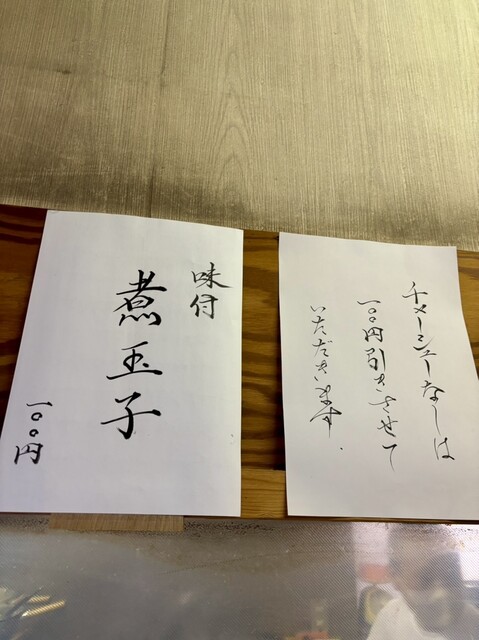 チャーシューなしは
一〇〇円引きさせて
いただきます。
味付
煮玉子
一〇〇円